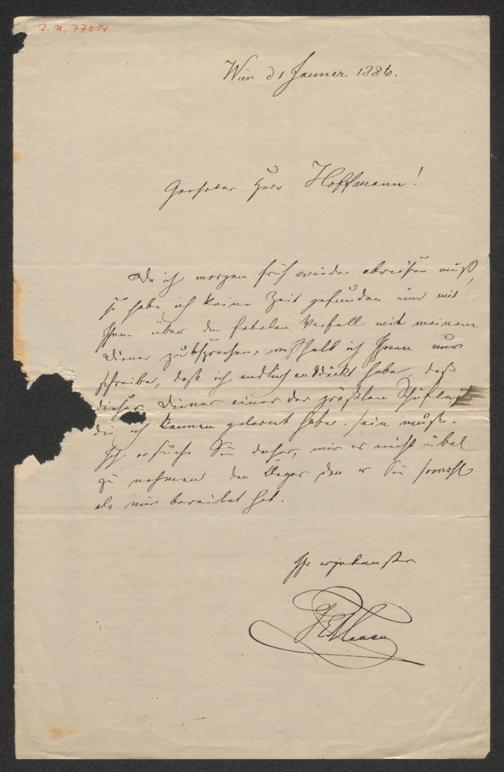 J. N. 77014
Wien d 1 Jänner 1886.
Geehrter Herr Hoffmann!
Da ich morgen früh wieder abreisen muß,
so habe ich keine Zeit gefunden um mit
Ihnen über den fatalen Vorfall mit meinem
Diener zu sprechen, weßhalb ich Ihnen nur
schreibe, daß ich endlich entdeckt habe, daß
dieser Diener einer der größten Schufte
die ich kennen gelernt habe. sein muß.
Ich ersuche Sie daher, mir es nicht übel
zu nehmen den Ärger den er Sie sowohl
als mir bereitet hat.
Ihr ergebenster